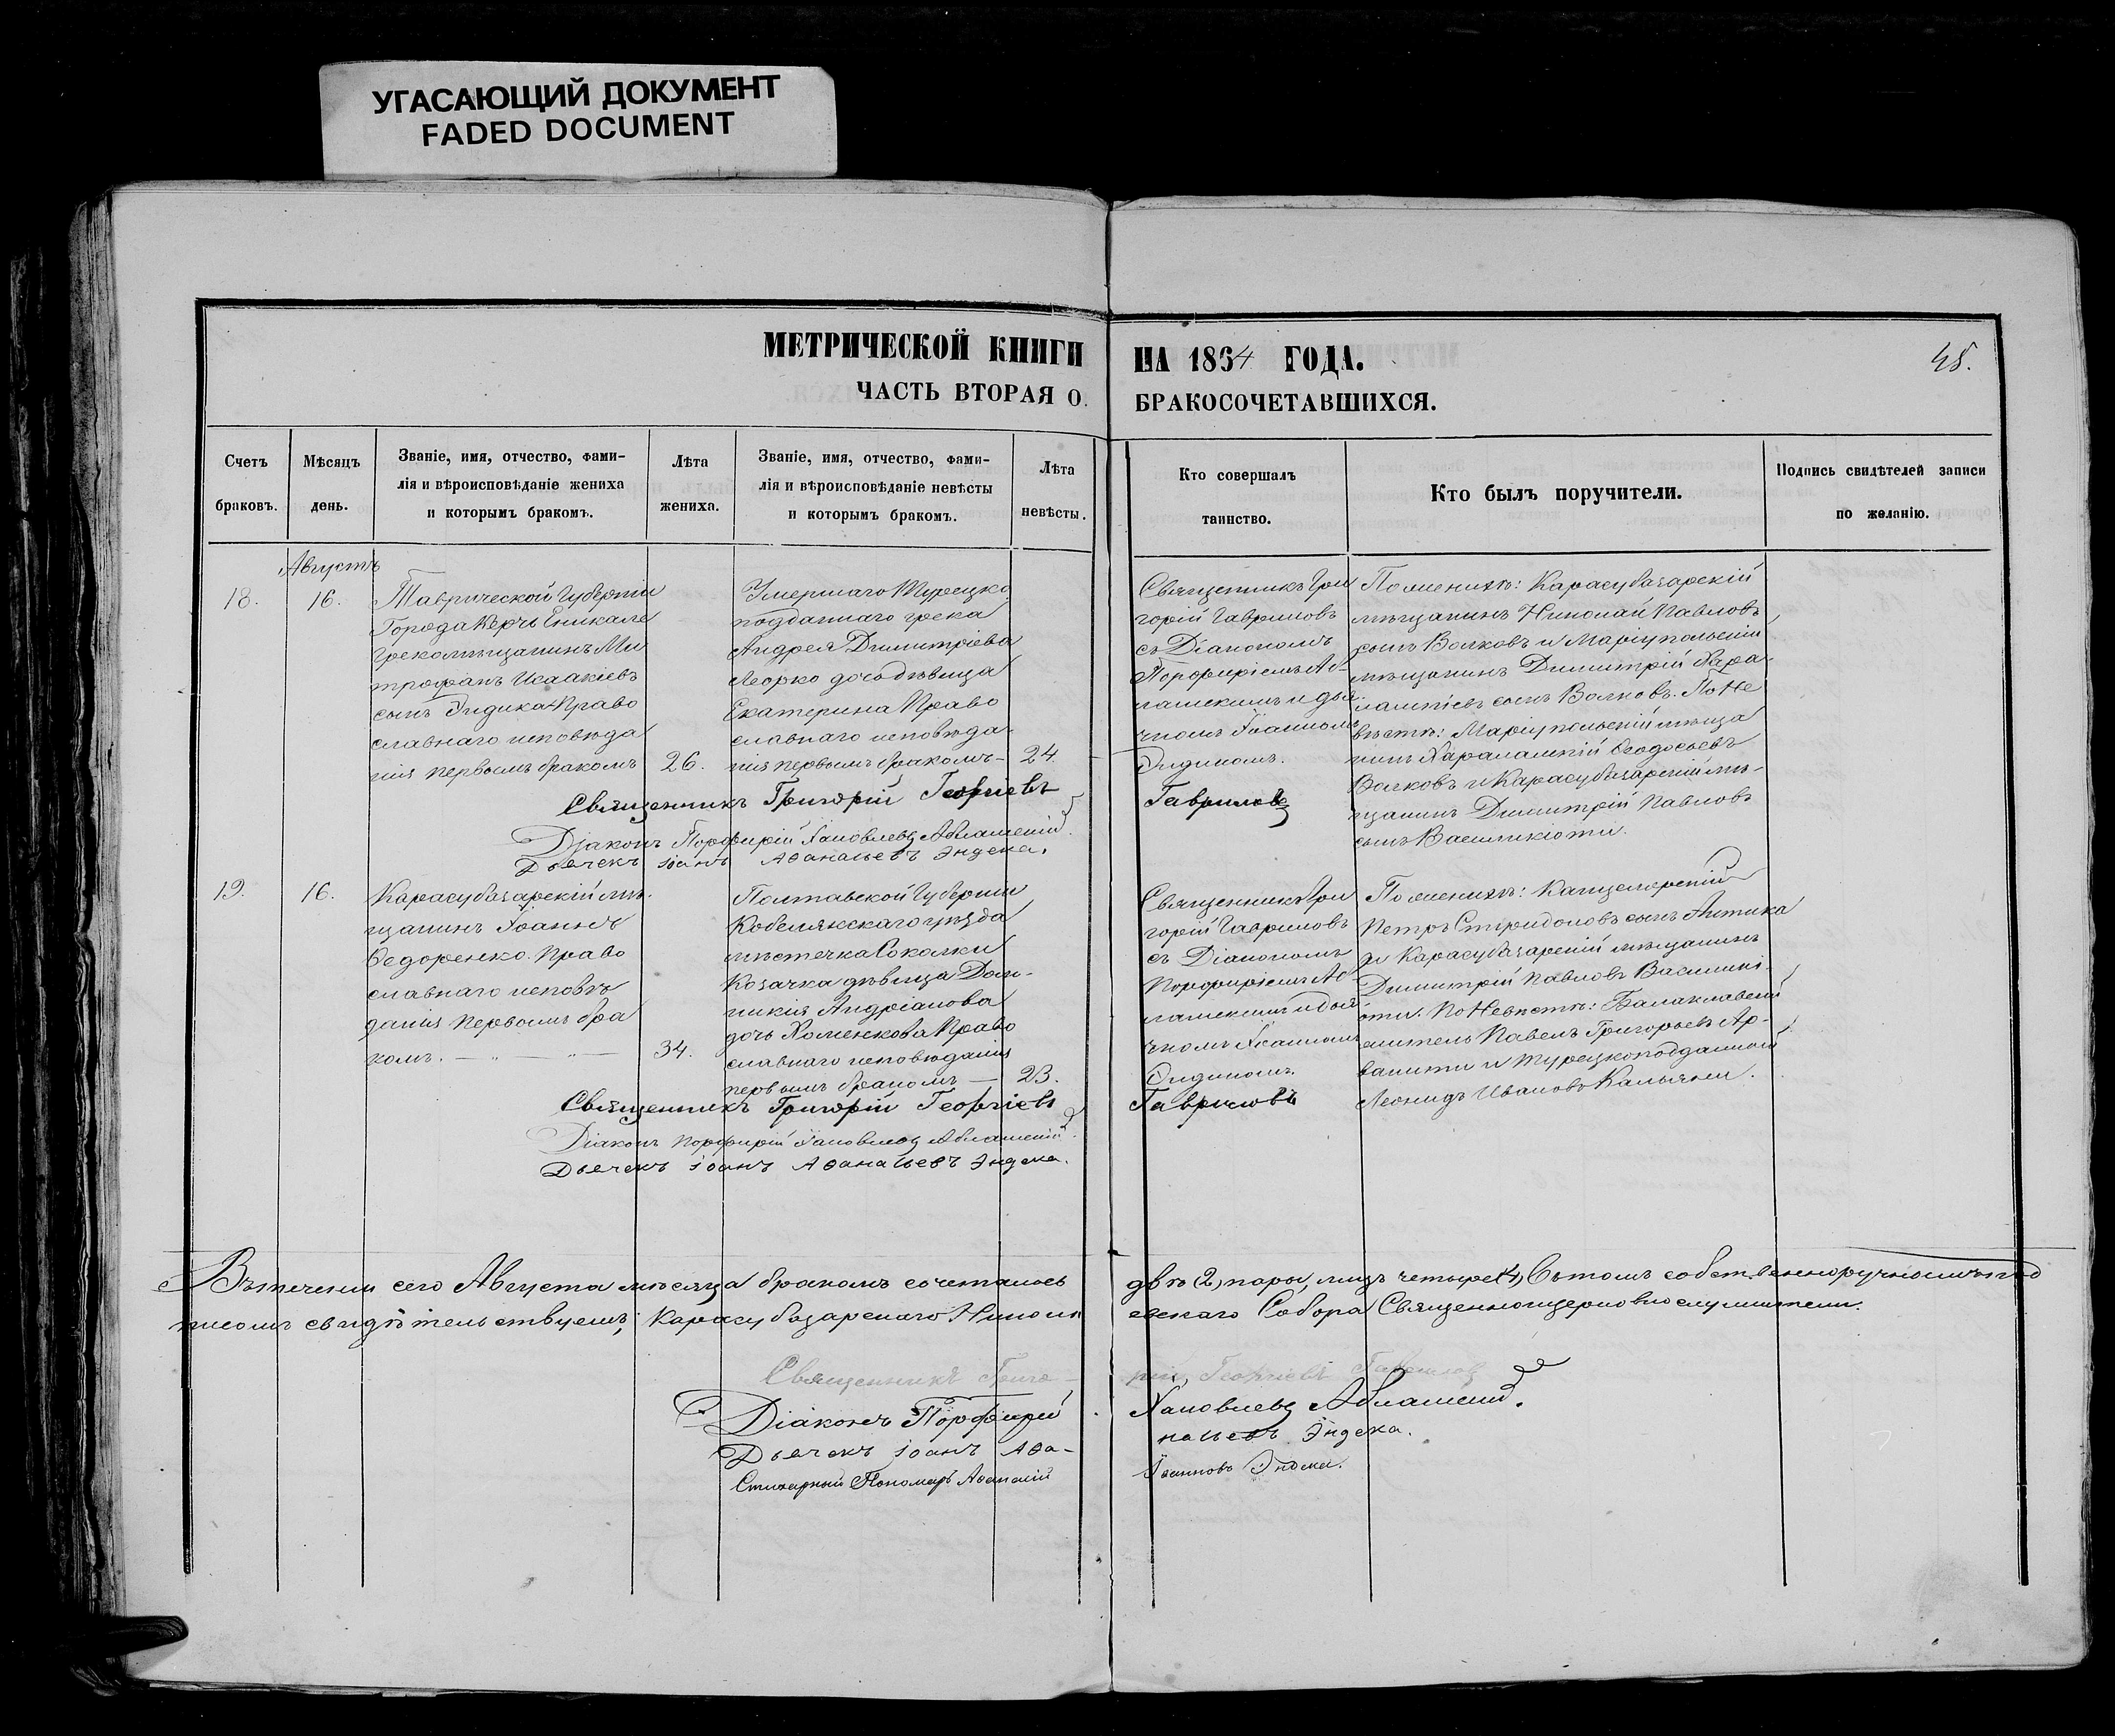 УГАСАЮЩИЙ ДОКУМЕНТ
FADED DOCUMENT
МЕТРИЧЕСКОЙ КНИГИ НА 1864 ГОДА.
48.
ЧАСТЬ ВТОРАЯ О БРАКОСОЧЕТАВШИХСЯ.
Счетъ
браковъ.
Мѣсяцъ
день.
Званіе, имя, отчество, фами-
лія и вѣроисповѣданіе жениха
и которымъ бракомъ.
Лѣта
жениха.
Званіе, имя, отчество, фами-
лія и вѣроисповѣданіе невѣсты
и которымъ бракомъ.
Лѣта
невѣсты.
Кто совершалъ
таинство.
Кто былъ поручители.
Подпись свидѣтелей записи
по желанію.
Августъ
18.
16.
Таврической Губерніи
Города Керчь Еникале
грекомѣщанинъ Ми
трофанъ Исаакіевъ
сынъ Индика Право
славнаго исповѣда
нія первымъ бракомъ
26.
Умершаго Турецко
подданнаго грека
Андрея Димитріева
Леорко дочь дѣвица
Екатерина Право
славнаго исповѣда
нія первымъ бракомъ –
24.
Священникъ Гри
горій Гавриловъ
съ Діакономъ
Порфиріемъ Аб-
лашскимъ и дья
чкомъ Іоанномъ
Эндикомъ.
По женихѣ: Карасубазарскій
мѣщанинъ Николай Павловъ
сынъ Волковъ и Маріупольскій
мѣщанинъ Димитрій Хара-
лампіевъ сынъ Волковъ. По не
вѣстѣ: Маріупольскій мѣща
нинъ Харалампій Ѳеодосьевъ
Волковъ и Карасубазарскій мѣ-
щанинъ Димитрій Павловъ
сынъ Василикіоти.
Священникъ Григорій Георгіевъ Гавриловъ
Діаконъ Порфирій Яковлевъ Аблашскій.
Дьячекъ Іоанъ Аѳанасьевъ Эндека.
19.
16.
Карасубазарскій мѣ-
щанинъ Іоаннъ
Ѳедоренко Право
славнаго исповѣ
данія первымъ бра
комъ. — " — " —
34.
Полтавской Губерніи
Кобелякскаго уѣзда
мѣстечка Соколки
Козачка дѣвица Дом-
никія Андріанова
дочь Хоменкова Право
славнаго исповѣданія
первымъ бракомъ —
23.
Священникъ Гри
горій Гавриловъ
съ Діакономъ
Порфиріемъ Аб
лашскимъ и дья
чкомъ Іоанномъ
Эндикомъ.
По женихѣ: Канцелярскій
Петръ Спиридоновъ сынъ Антика
и Карасубазарскій мѣщанинъ
Димитрій Павловъ Василикі-
оти. По Невѣстѣ: Балаклавскій
житель Павелъ Григорьевъ Ар-
ванити и Турецкоподданный
Леонидъ Ивановъ Кальяни.
Священникъ Григорій Георгіевъ Гавриловъ
Діаконъ Порфирій Яковлевъ Аблашскій.
Дьячекъ Іоанъ Аѳанасьевъ Эндека.
Въ теченіи сего Августа мѣсяца бракомъ сочеталось двѣ (2) пары, лицъ четыре (4) Въ томъ собственноручнымъ под
писомъ свидѣтельствуемъ; Карасубазарскаго Николаевскаго Собора Священноцерковнослужители.
Священникъ Григорій Георгіевъ Гавриловъ
Діаконъ Порфирій Яковлевъ Аблашскій.
Дьячекъ Іоанъ Аѳанасьевъ Эндека.
Стихарный Пономарь Аѳанасій Іоанновъ Эндека.